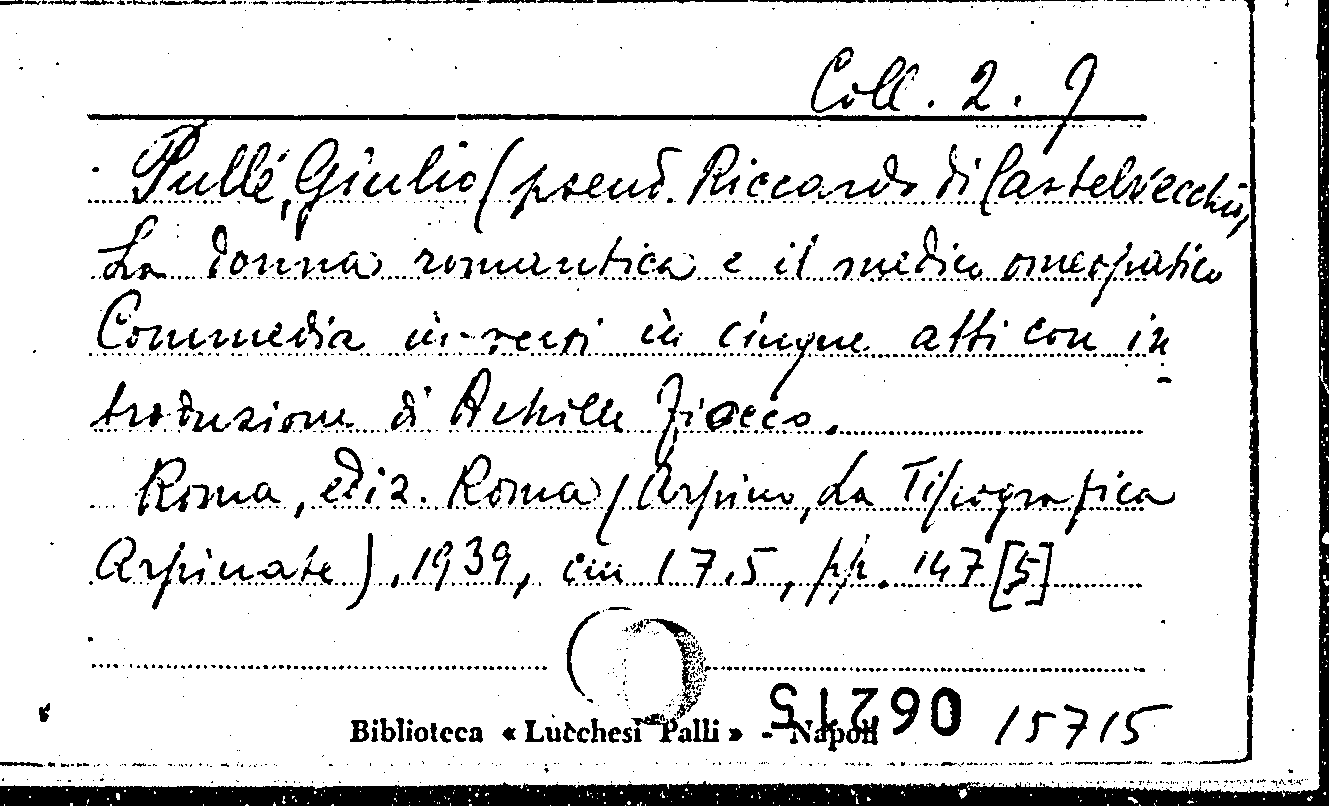 Coll. 2. 9
Pullé, Giulio (pseud. Riccardo di Castelvecchio)
La donna romantica e il medico omeopatico
Commedia in versi in cinque atti con in-
troduzione di Achille Fiocco.
Roma, ediz. Roma (Arpino, La Tipografica
Arpinate), 1939, cm 17.5, pp. 147 [5]
Biblioteca « Lucchesi Palli » - Napoli
15715